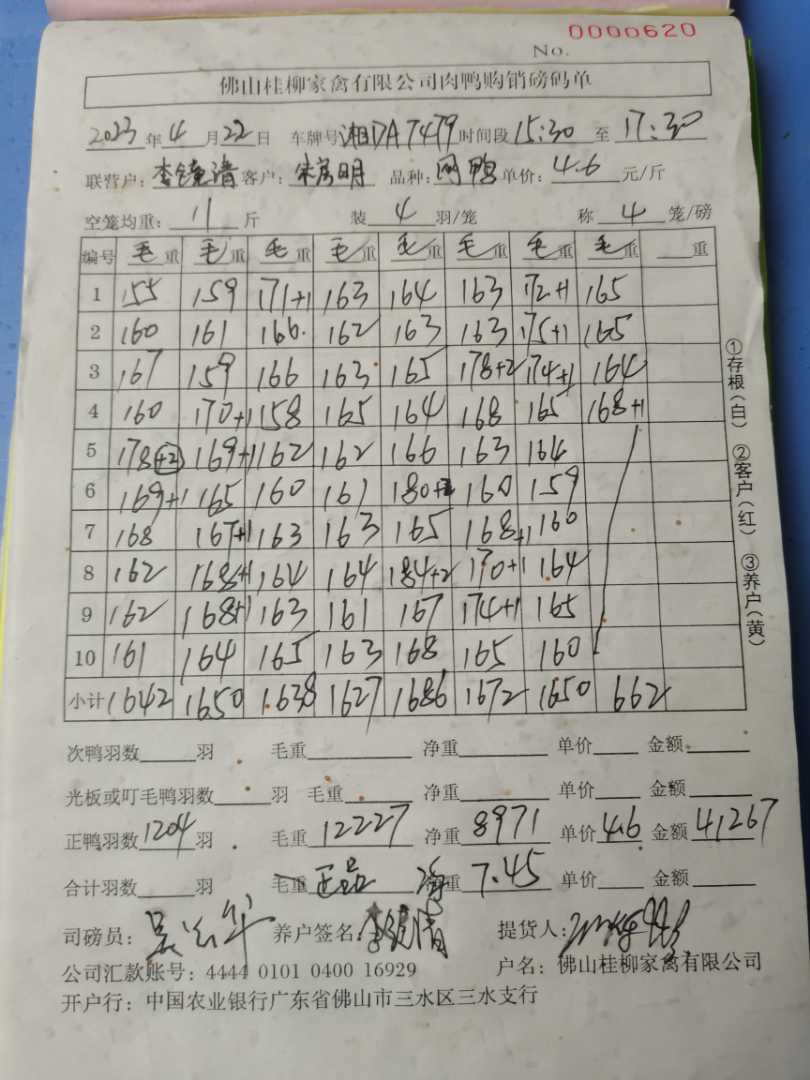 0000620
No.
佛山桂柳家禽有限公司肉鸭购销磅码单
2023年4月22日 车牌号湘DA7479时间段15:30至17:30
联营户: 李镜清 客户: 明 品种: 网鸭 单价: 4.6 元/斤
空笼均重: 11 斤 装 4 羽/笼 称 4 笼/磅
编号 毛重 毛重 毛重 毛重 毛重 毛重 毛重 毛重 重
1 155 159 171+1 163 164 163 172+1 165
2 160 161 166. 162 163 163 175+1 165
3 167 159 166 163 165 178+2 174+1 164
4 160 170+1 158 165 164 168 165 168+1
5 178+2 169+1 162 162 166 163 164
6 169+1 165 160 161 180+2 160 159
7 168 167+1 163 163 165 168+1 160
8 162 168+1 164 164 184+2 170+1 164
9 162 168+1 163 161 167 174+1 165
10 161 164 165 163 168 165 160
小计 1642 1650 1638 1627 1686 1672 1650 662
①存根(白) ②客户(红) ③养户(黄)
次鸭羽数 羽 毛重 净重 单价 金额
光板或叮毛鸭羽数 羽 毛重 净重 单价 金额
正鸭羽数1204羽 毛重 12227 净重 8971 单价4.6 金额41267
合计羽数 羽 毛重 正品 净重 7.45 单价 金额
司磅员: 养户签名: 李镜清 提货人:
公司汇款账号: 4444 0101 0400 16929 户名: 佛山桂柳家禽有限公司
开户行: 中国农业银行广东省佛山市三水区三水支行